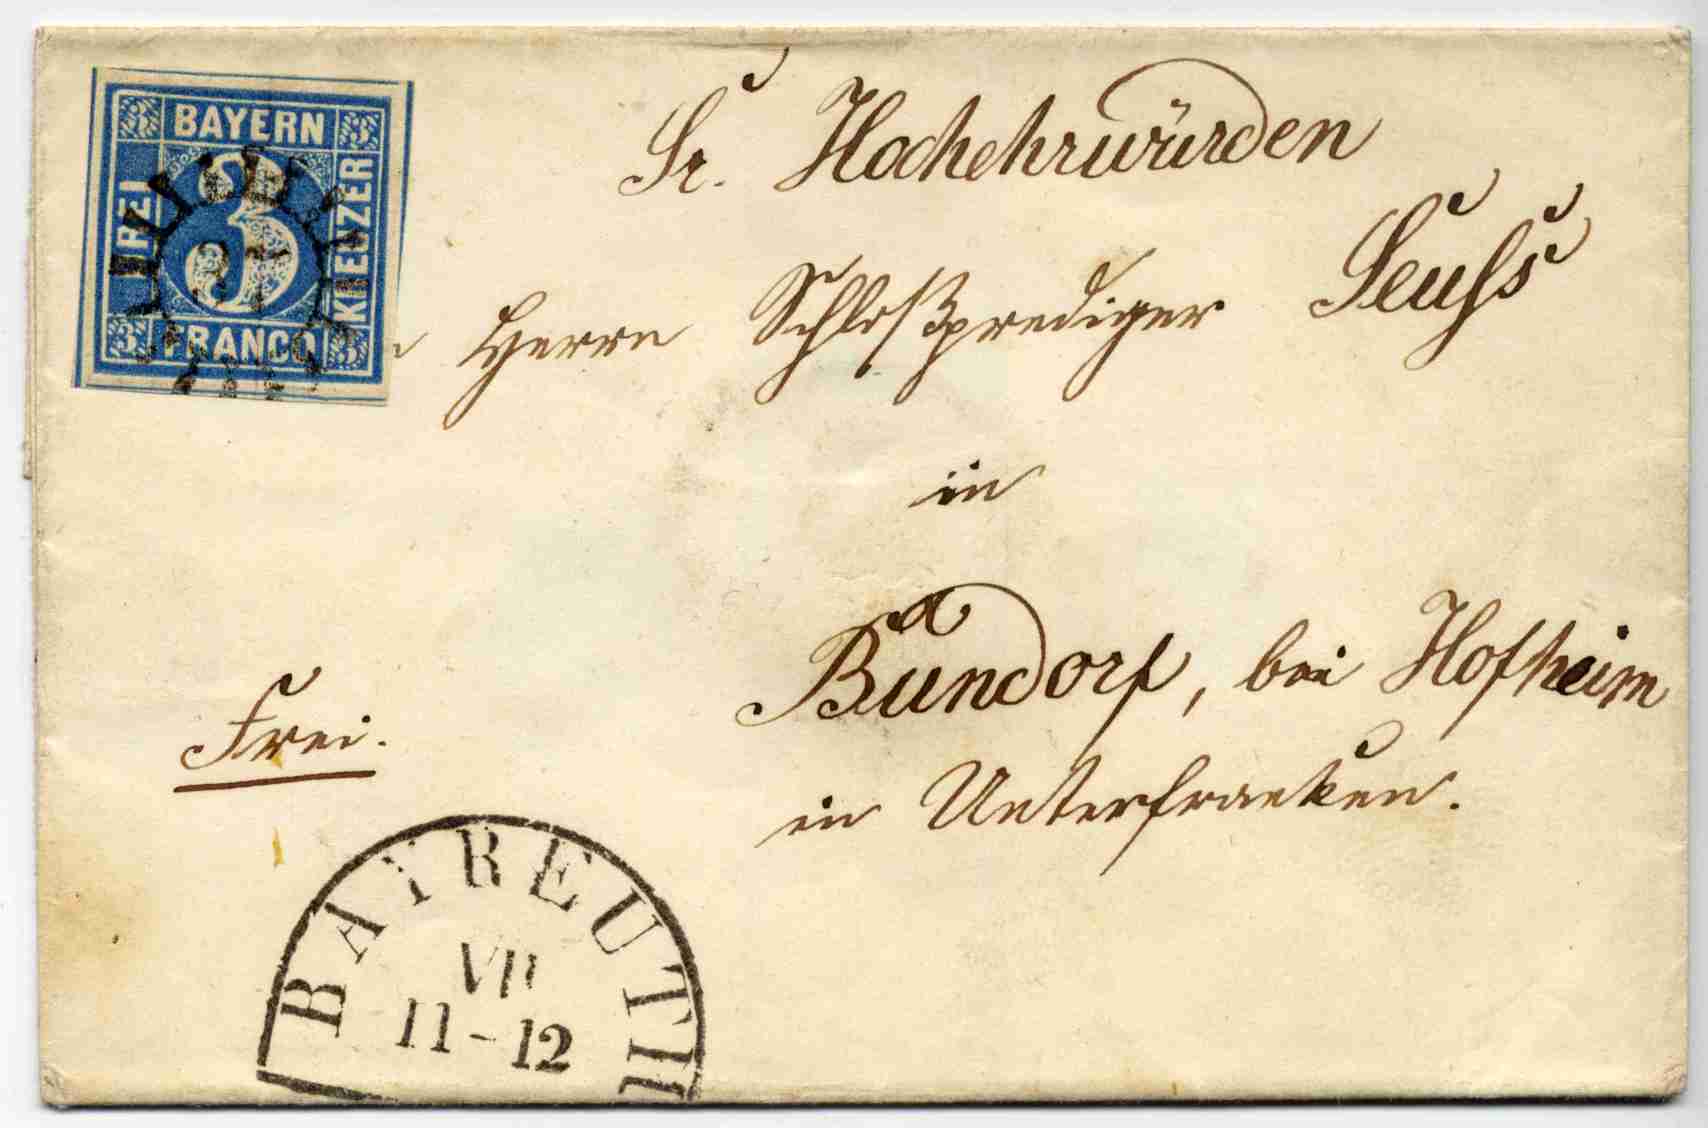 BAYERN
DREI
3
KREUZER
FRANCO
3 3 3 3
Sr. Hochehrwürden
Herrn Schloßprediger Seuß
in
Bundorf, bei Hofheim
in Unterfranken.
Frei.
BAYREUTH
VII
11-12